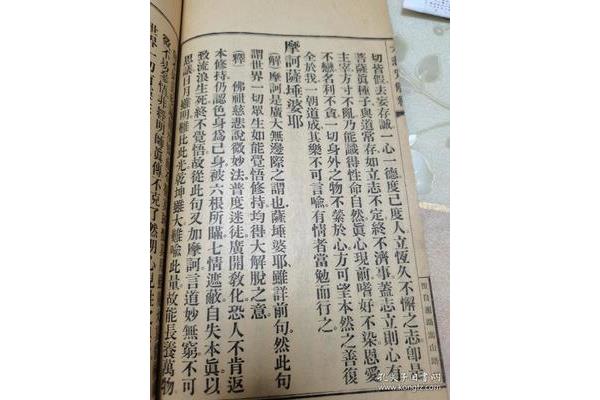 切皆假去妄存誠一心一德度己度人立恆久不懈之志卽是
菩薩眞種子與道常存如立志不定終不濟事蓋志立則心有
主宰方寸不亂乃能識得性命自然眞心現前嗜好不染恩愛
不戀名利不貪一切身外之物不縈於心方可望本然之善復
全於我一朝道成其樂不可言喩有情者當勉而行之
摩訶薩埵婆耶
(解)摩訶是廣大無邊際之謂也薩埵婆耶雖詳前句然此句
謂世界一切眾生如能覺悟修持均得大解脫之意
(釋)佛祖慈悲說微妙法普度迷徒廣開敎化恐人不肯返
本修持仍認色身爲己身被六根所瞞七情遮蔽自失本眞以
致流浪生死終不覺悟故從此句又加摩訶言道妙無窮不可
思議日月雖明難比此光乾坤雖大難喩此量故能長養萬物
孔夫子旧书网
www.kongfz.com